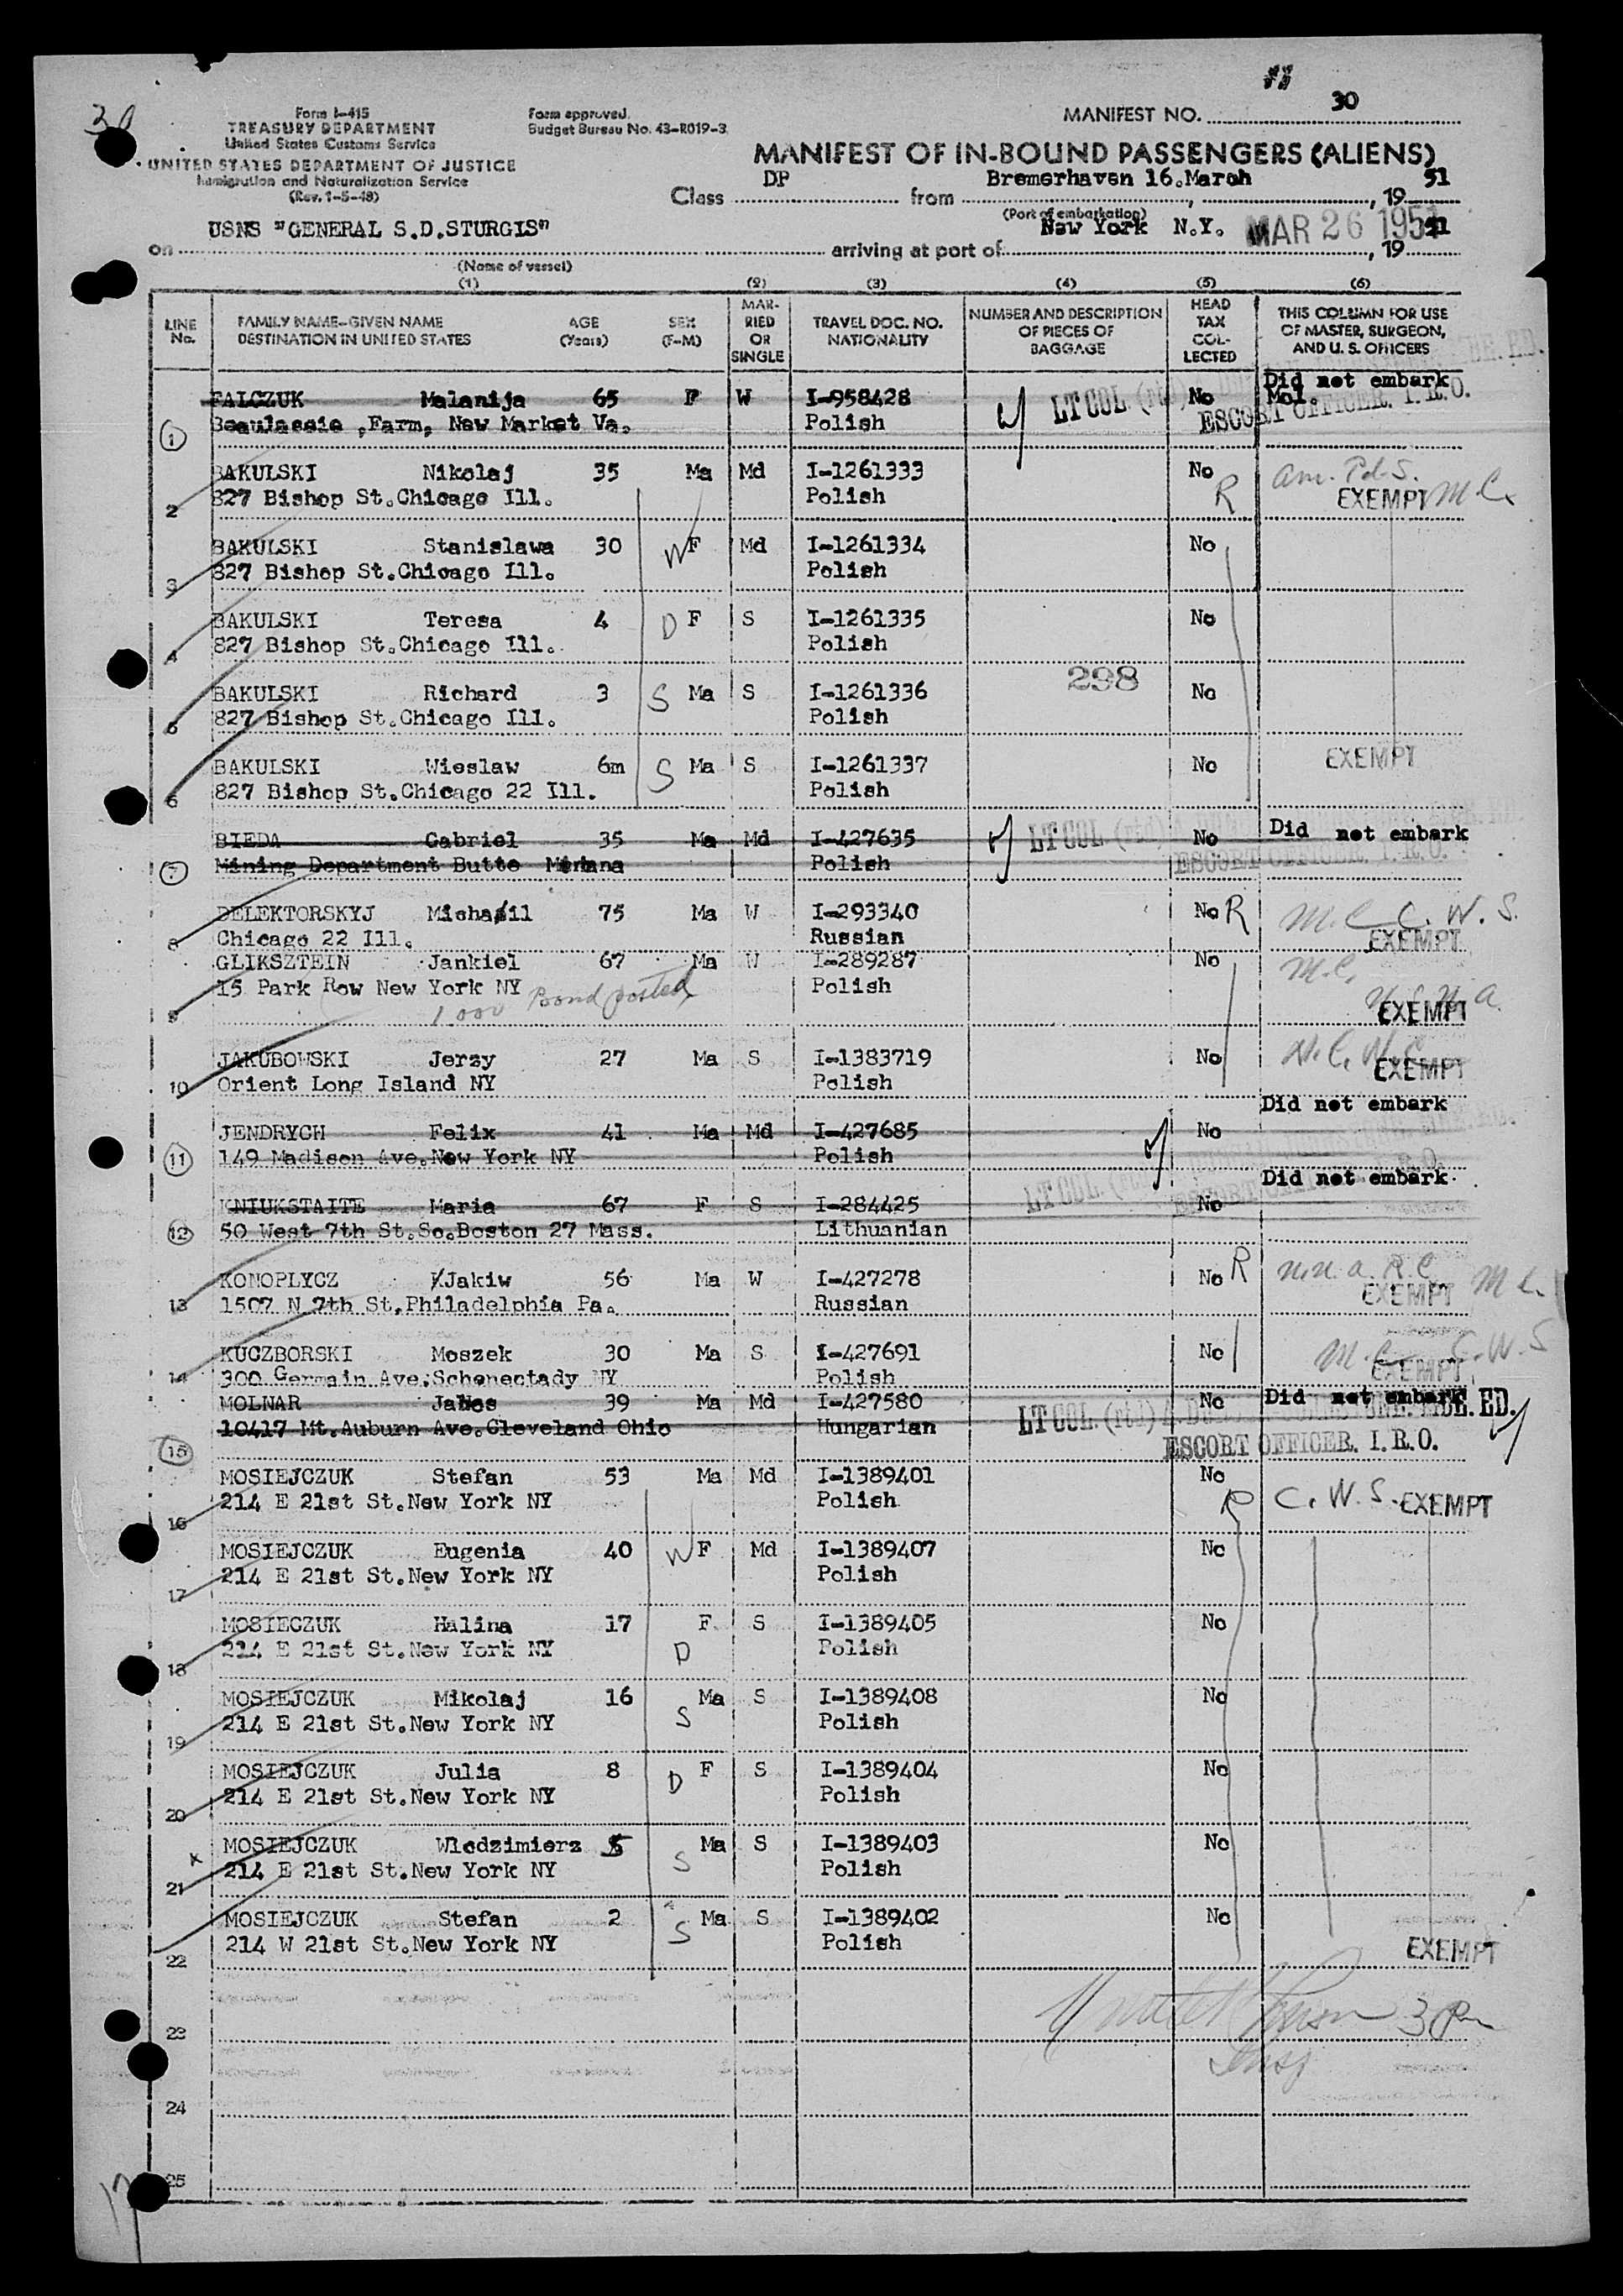 30
Form I-415
TREASURY DEPARTMENT
United States Customs Service
UNITED STATES DEPARTMENT OF JUSTICE
Immigration and Naturalization Service
(Rev. 1-5-48)
Form approved.
Budget Bureau No. 43-R019-3.
MANIFEST NO. 30
MANIFEST OF IN-BOUND PASSENGERS (ALIENS)
Class DP from Bremerhaven 16.March, 19 51
(Port of embarkation)
on USNS "GENERAL S.D.STURGIS" arriving at port of New York N.Y. MAR 26 1951, 19 51
(Name of vessel)
(1) (2) (3) (4) (5) (6)
LINE No. FAMILY NAME-GIVEN NAME DESTINATION IN UNITED STATES AGE (Years) SEX (F-M) MARRIED OR SINGLE TRAVEL DOC. NO. NATIONALITY NUMBER AND DESCRIPTION OF PIECES OF BAGGAGE HEAD TAX COLLECTED THIS COLUMN FOR USE OF MASTER, SURGEON, AND U. S. OFFICERS
Did not embark
FALCZUK Malanija 65 F W I-958428 LT COL. (rtd) No Mol.
ESCORT OFFICER. I.R.O.
1 Beaulassie ,Farm, New Market Va. Polish
BAKULSKI Nikolaj 35 Ma Md I-1261333 No
2 827 Bishop St.Chicago Ill. Polish R EXEMPT M.C.
BAKULSKI Stanislawa 30 W F Md I-1261334 No
3 827 Bishop St.Chicago Ill. Polish
BAKULSKI Teresa 4 D F S I-1261335 No
4 827 Bishop St.Chicago Ill. Polish
298
BAKULSKI Richard 3 S Ma S I-1261336 No
5 827 Bishop St.Chicago Ill. Polish
BAKULSKI Wieslaw 6m S Ma S I-1261337 No EXEMPT
6 827 Bishop St.Chicago 22 Ill. Polish
BIEDA Gabriel 35 Ma Md I-427635 LT COL (rtd) No Did not embark
7 Mining Department Butte Polish ESCORT OFFICER. I.R.O.
DELEKTORSKYJ Michail 75 Ma W I-293340 No R M.C. C.W.S.
8 Chicago 22 Ill. Russian EXEMPT
GLIKSZTEIN Jankiel 67 Ma W I-289287 No M.C.
9 15 Park Row New York NY Polish
1.000 Bond posted EXEMPT
JAKUBOWSKI Jerzy 27 Ma S I-1383719 No EXEMPT
10 Orient Long Island NY Polish
Did not embark
JENDRYCH Felix 41 Ma Md I-427685 No
11 149 Madison Ave.New York NY Polish
Did not embark
KNIUKSTAITE Maria 67 F S I-284425 LT COL. No
12 50 West 7th St.So.Boston 27 Mass. Lithuanian
KONOPLYCZ Jakiw 56 Ma W I-427278 No R
13 1507 N 7th St.Philadelphia Pa. Russian EXEMPT M.C.
KUCZBORSKI Moszek 30 Ma S I-427691 No M.C. C.W.S
14 300 Germain Ave.Schenectady NY Polish EXEMPT
MOLNAR Janos 39 Ma Md I-427580 No Did not embark
15 10417 Mt.Auburn Ave.Cleveland Ohio Hungarian LT COL. (rtd)
ESCORT OFFICER. I.R.O.
MOSIEJCZUK Stefan 53 Ma Md I-1389401 No
16 214 E 21st St.New York NY Polish R C.W.S. EXEMPT
MOSIEJCZUK Eugenia 40 W F Md I-1389407 No
17 214 E 21st St.New York NY Polish
MOSIECZUK Halina 17 F S I-1389405 No
18 214 E 21st St.New York NY D Polish
MOSIEJCZUK Mikolaj 16 Ma S I-1389408 No
19 214 E 21st St.New York NY S Polish
MOSIEJCZUK Julia 8 D F S I-1389404 No
20 214 E 21st St.New York NY Polish
MOSIEJCZUK Wlodzimierz 5 Ma S I-1389403 No
x 21 214 E 21st St.New York NY S Polish
MOSIEJCZUK Stefan 2 S Ma S I-1389402 No
22 214 W 21st St.New York NY Polish EXEMPT
23
24
25